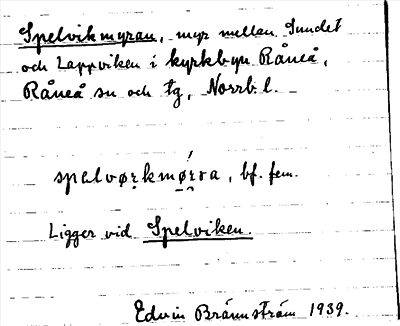 Spelvikmyran, myr mellan Sundet
och Lappviken i kyrkbyn Råneå,
Råneå sn och tg, Norrb. l.
spelvørkmø̱rra, bf. fem.
Ligger vid Spelviken.
Edvin Brännström 1939.